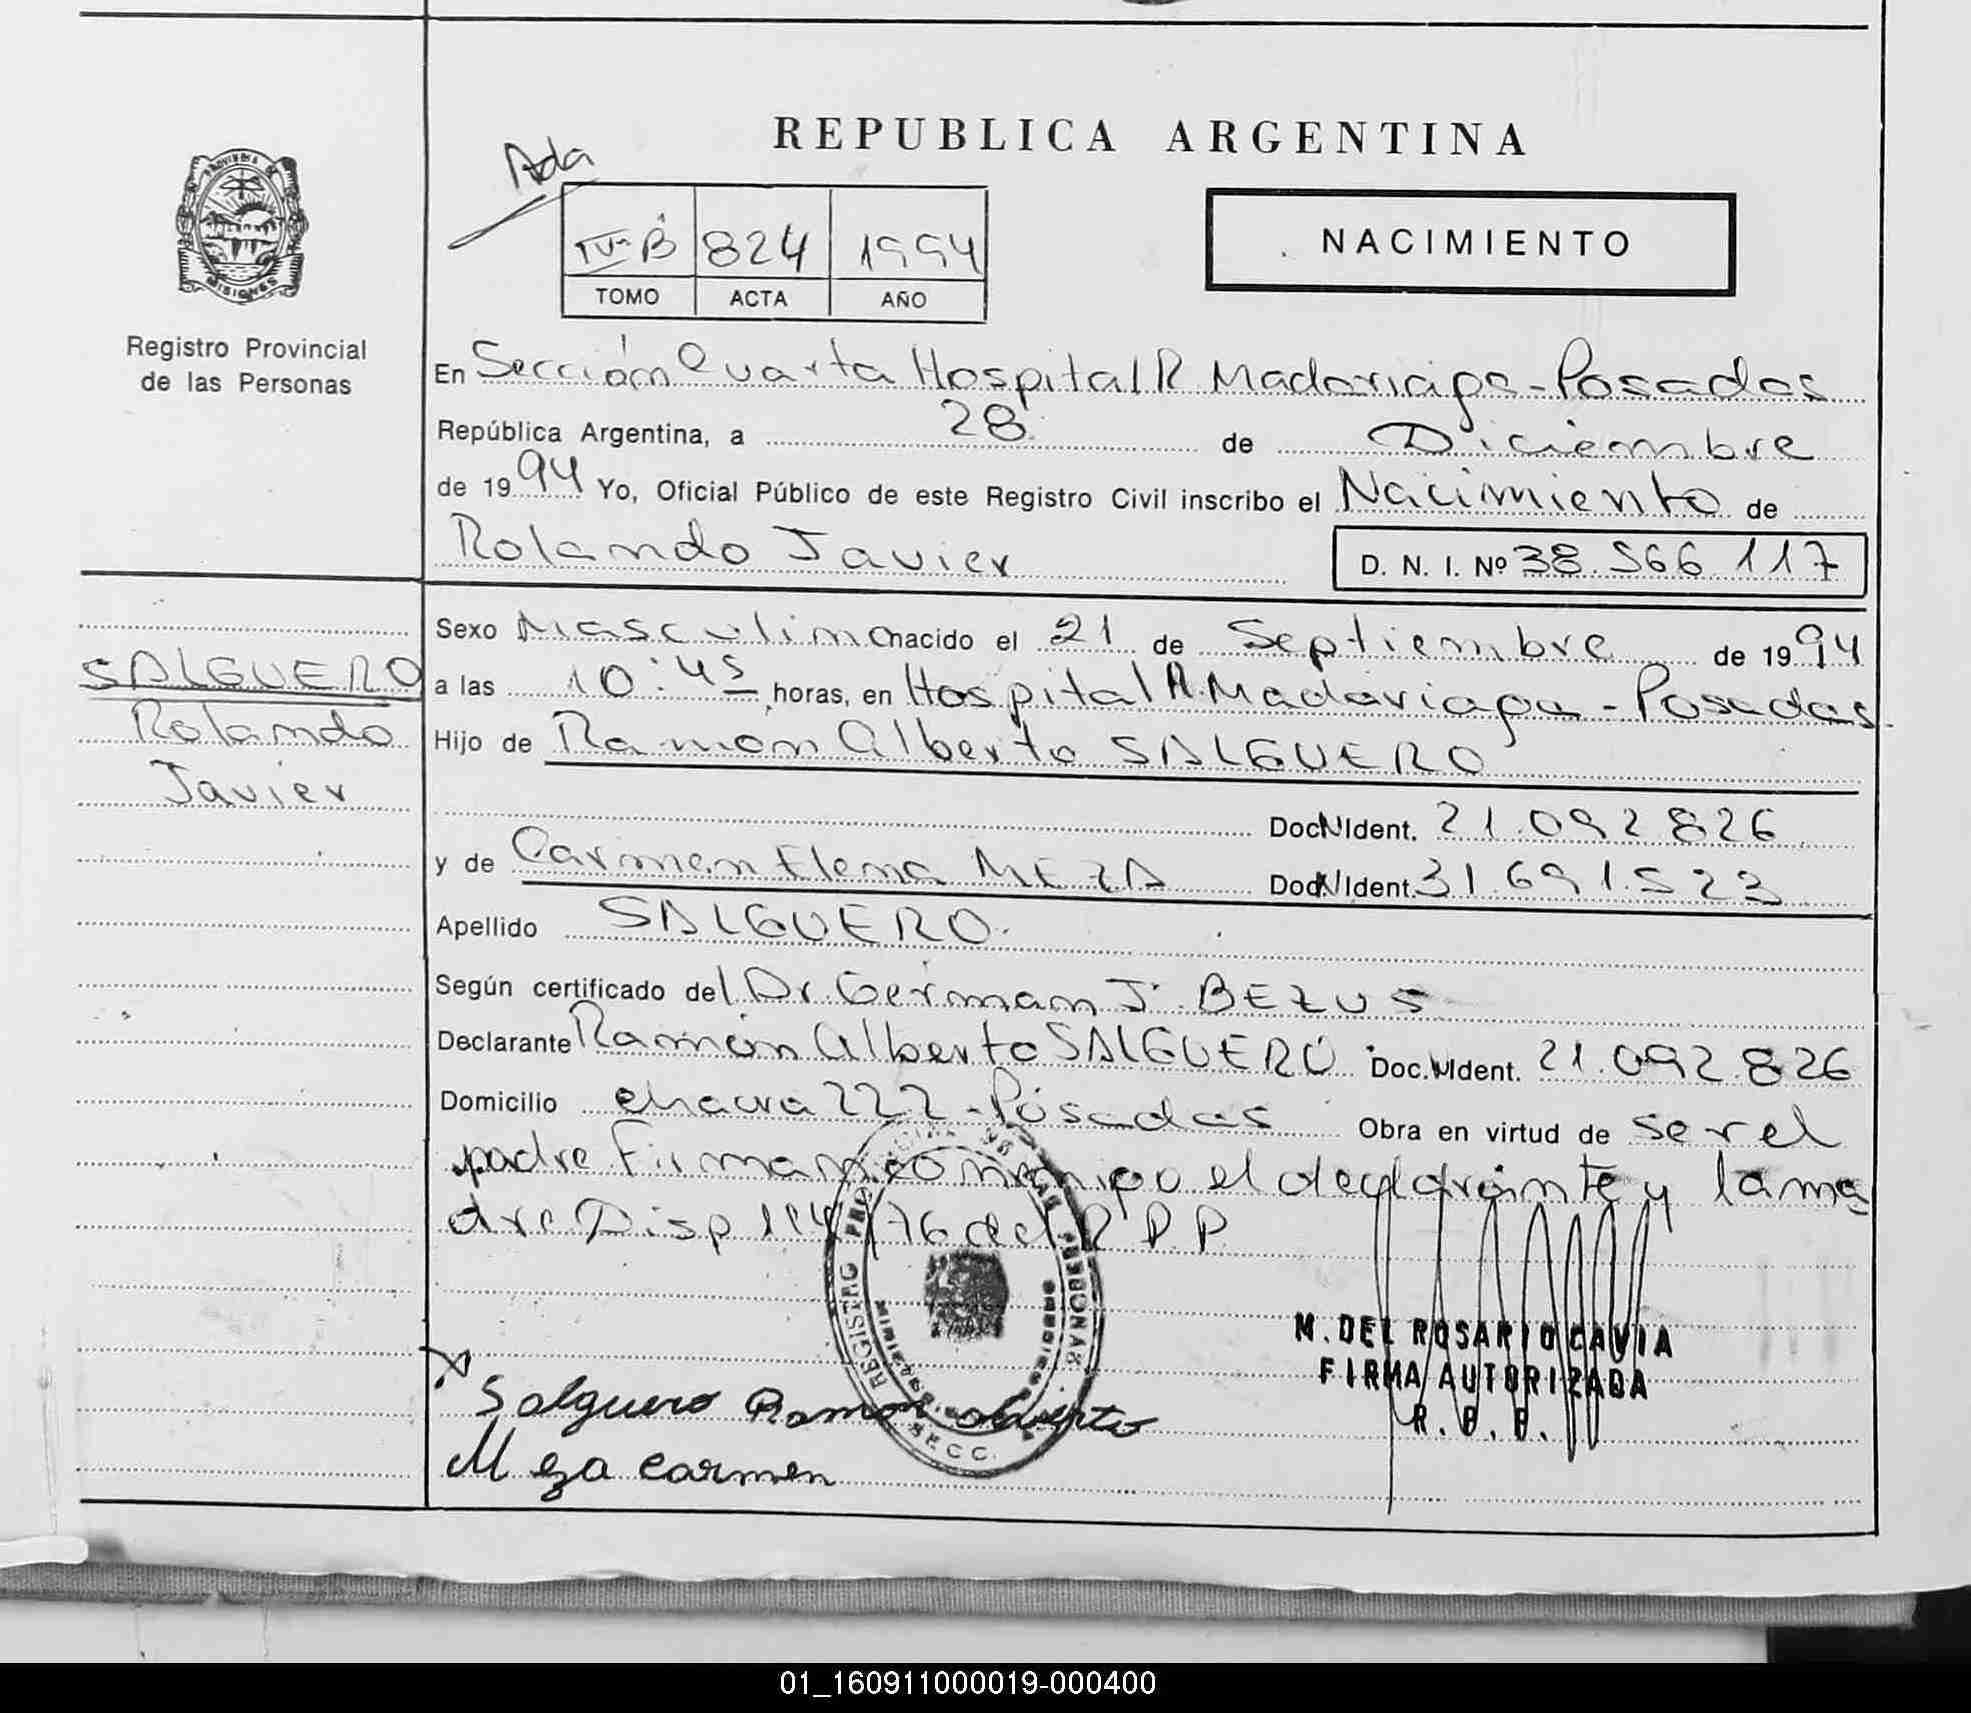 REPUBLICA ARGENTINA
Ada
PROVINCIA DE
MISIONES
IV-B 824 1994
TOMO ACTA AÑO
NACIMIENTO
Registro Provincial
de las Personas
En Sección Cuarta Hospital R. Madariaga - Posadas
República Argentina, a 28 de Diciembre
de 1994 Yo, Oficial Público de este Registro Civil inscribo el Nacimiento de
Rolando Javier
D. N. I. Nº 38.566.117
SALGUERO
Rolando
Javier
Sexo Masculino nacido el 21 de Septiembre de 1994
a las 10:45 horas, en Hospital R. Madariaga - Posadas.
Hijo de Ramon Alberto SALGUERO
Doc.N.Ident. 21.092.826
y de Carmen Elena MEZA Doc.N.Ident. 31.691.523
Apellido SALGUERO.
Según certificado del Dr. German J. BEZUS
Declarante Ramón Alberto SALGUERO Doc.N.Ident. 21.092.826
Domicilio chacra 222 - Posadas Obra en virtud de ser el
padre Firman conmigo el declarante y la ma
dre Disp 114/76 del R.P.P.
REGISTRO PERSONAS
SECC.
M. DEL ROSARIO CAVIA
FIRMA AUTORIZADA
R. P. P.
Salguero Ramon Alberto
Meza Carmen
01_160911000019-000400